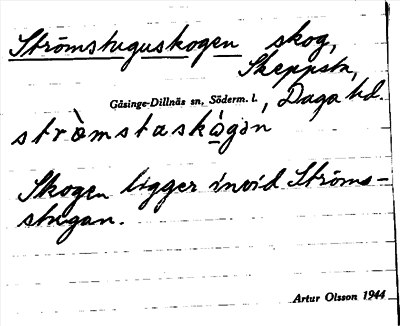 Strömstuguskogen skog,
Skeppsta,
Gåsinge-Dillnäs sn, Söderm. l. , Daga hd.
strömstaskógən
Skogen ligger invid Ströms-
stugan.
Artur Olsson 1944